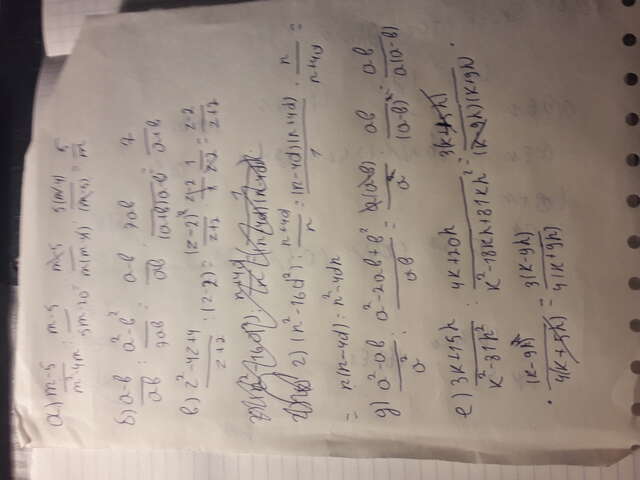 а) (m-5)/(m²-4m) : (m-5)/(5m-20) = (m-5)/(m(m-4)) · 5(m-4)/(m-5) = 5/m
б) (a-b)/(ab) : (a²-b²)/(7ab) = (a-b)/(ab) · 7ab/((a+b)(a-b)) = 7/(a+b)
в) (z²-4z+4)/(z+2) : (z-2) = (z-2)²/(z+2) · 1/(z-2) = (z-2)/(z+2)
г) (n²-16d²) : (n+4d)/n = (n-4d)(n+4d)/1 · n/(n+4d) =
= n(n-4d) = n²-4dn
д) (a²-ab)/a² : (a²-2ab+b²)/(ab) = a(a-b)/a² · ab/(a-b)² = ab/(a(a-b))
е) (3k+15h)/(k²-81h²) : (4k+20h)/(k²-18kh+81kh²) = 3(k+5h)/((k-9h)(k+9h)) ·
· (k-9h)²/(4(k+5h)) = 3(k-9h)/(4(k+9h))